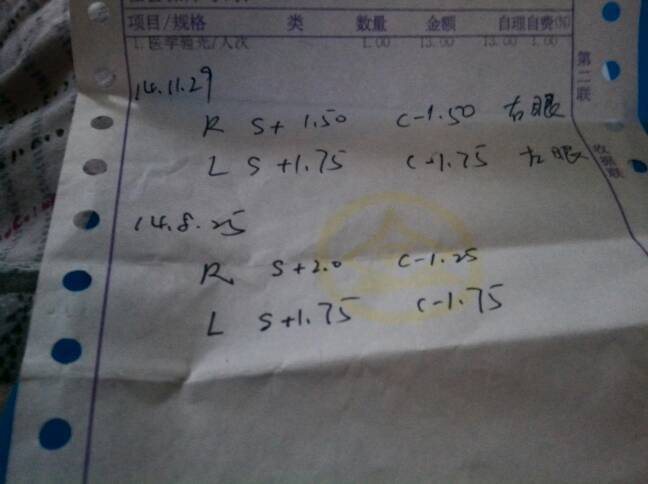 项目/规格 类 数量 金额 自理自费(N)
1.医学验光/人次 1.00 13.00 13.00 1.00
第二联
收据联
14.11.29
R S+1.50 C-1.50 右眼
L S+1.75 C-1.75 左眼
14.8.25
R S+2.0 C-1.25
L S+1.75 C-1.75